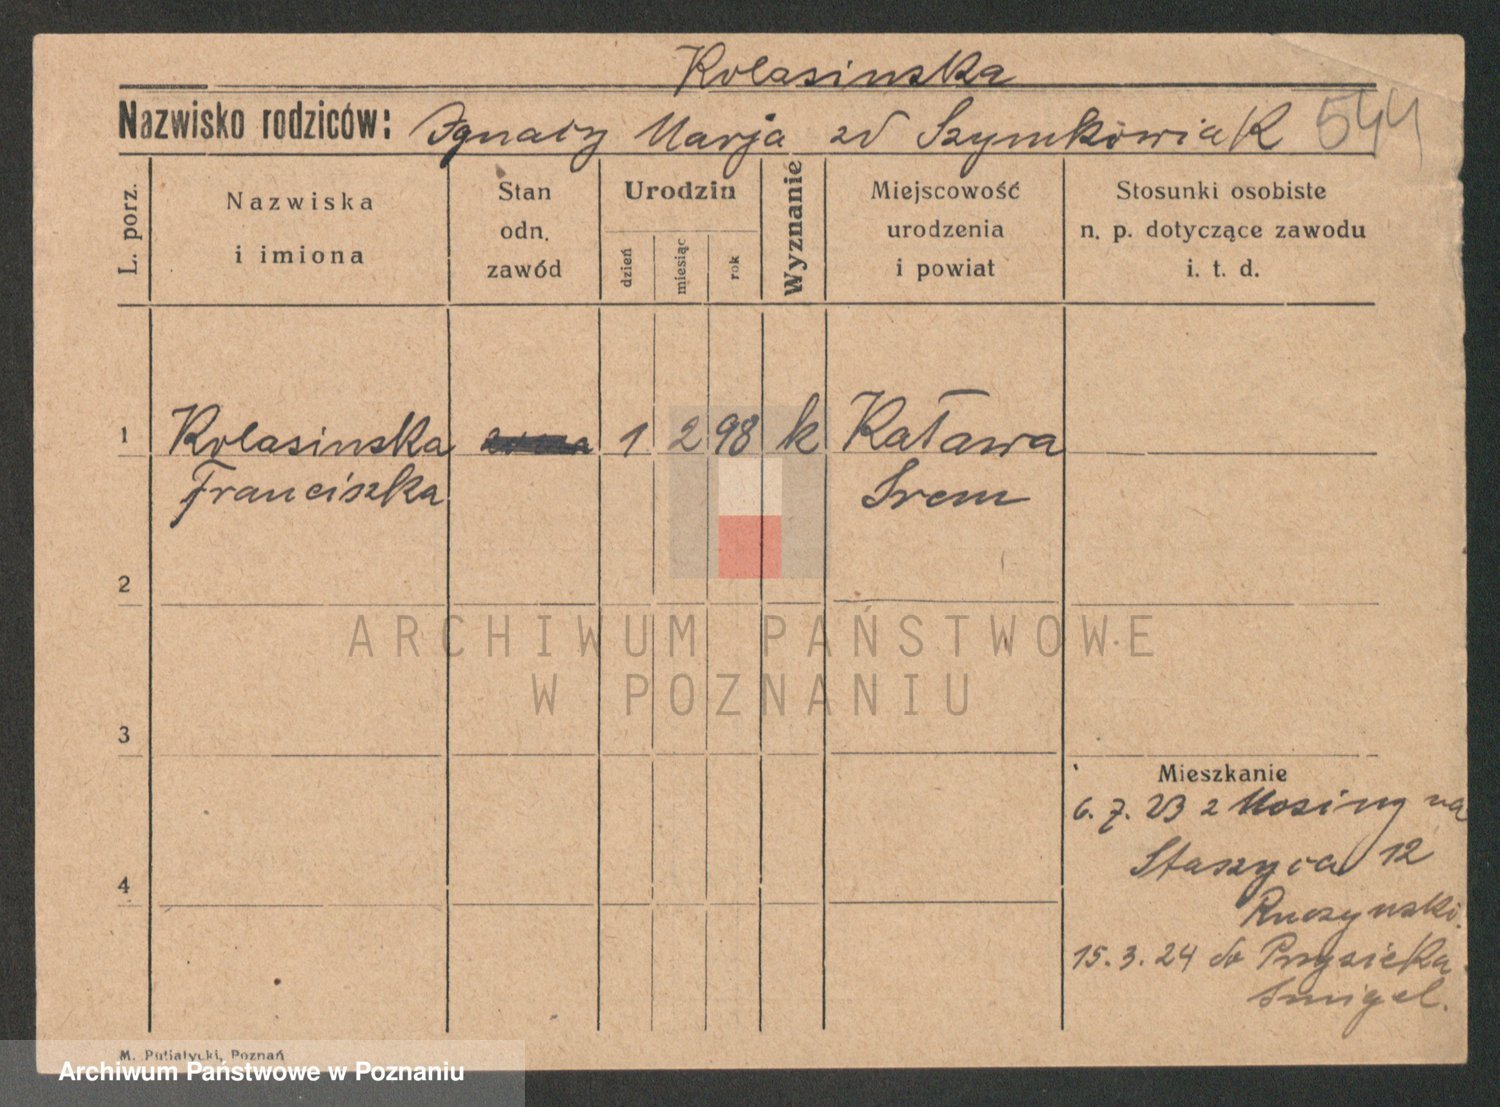 Kolasinska
Nazwisko rodziców: Ignacy Marja zd Szymkowiak 544
L. porz.
Nazwiska
i imiona
Stan
odn.
zawód
Urodzin
dzień
miesiąc
rok
Wyznanie
Miejscowość
urodzenia
i powiat
Stosunki osobiste
n. p. dotyczące zawodu
i. t. d.
1 Kolasinska 1 2 98 k Kaława
Franciszka Srem
2
3
4
Mieszkanie
6. 7. 23 z Mosiny na
Staszyca 12
Ruczynski.
15. 3. 24 do Przysieka
Smigel.
M. Putiatycki, Poznań
ARCHIWUM PAŃSTWOWE
W POZNANIU
Archiwum Państwowe w Poznaniu